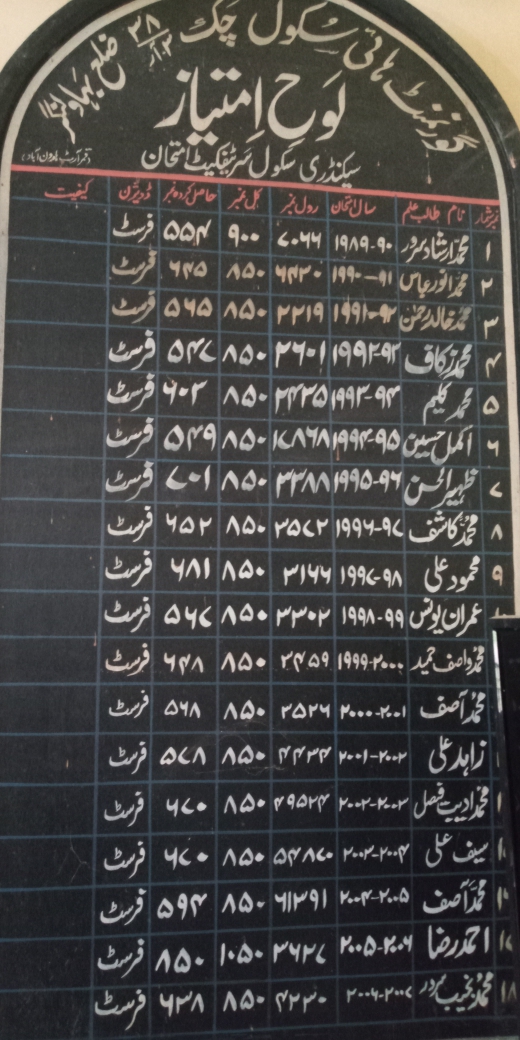 گورنمنٹ ہائی سکول چک ۳۸/۳.آر ضلع بہاولنگر
لوحِ اِمتیاز
سیکنڈری سکول سرٹیفکیٹ امتحان
نمبرشمار نام طالب علم سال امتحان رول نمبر کل نمبر حاصل کردہ نمبر ڈویژن کیفیت
۱ محمد ارشاد سرور ۱۹۸۹-۹۰ ۷۰۶۶ ۹۰۰ ۵۵۴ فرسٹ
۲ محمد انور عباس ۱۹۹۰-۹۱ ۶۴۲۰ ۸۵۰ ۶۴۵ فرسٹ
۳ محمد خالد رحمٰن ۱۹۹۱-۹۲ ۲۲۱۹ ۸۵۰ ۵۶۵ فرسٹ
۴ محمد زکاف ۱۹۹۲-۹۳ ۲۶۰۱ ۸۵۰ ۵۴۷ فرسٹ
۵ محمد کلیم ۱۹۹۳-۹۴ ۲۴۳۵ ۸۵۰ ۶۰۲ فرسٹ
۶ اکمل حسین ۱۹۹۴-۹۵ ۱۷۸۶۸ ۸۵۰ ۵۴۹ فرسٹ
۷ ظہیر الحسن ۱۹۹۵-۹۶ ۳۳۸۸ ۸۵۰ ۷۰۱ فرسٹ
۸ محمد کاشف ۱۹۹۶-۹۷ ۳۵۷۲ ۸۵۰ ۶۵۲ فرسٹ
۹ محمود علی ۱۹۹۷-۹۸ ۳۱۶۶ ۸۵۰ ۶۸۱ فرسٹ
عمران یونس ۱۹۹۸-۹۹ ۳۳۰۲ ۸۵۰ ۵۶۷ فرسٹ
محمد واصف حمید ۱۹۹۹-۲۰۰۰ ۲۴۵۹ ۸۵۰ ۶۴۸ فرسٹ
محمد آصف ۲۰۰۰-۲۰۰۱ ۳۵۲۶ ۸۵۰ ۵۶۸ فرسٹ
زاہد علی ۲۰۰۱-۲۰۰۲ ۴۴۳۴ ۸۵۰ ۵۷۸ فرسٹ
محمد ادیب فیصل ۲۰۰۲-۲۰۰۳ ۴۹۵۲۴ ۸۵۰ ۶۷۰ فرسٹ
سیف علی ۲۰۰۳-۲۰۰۴ ۵۴۸۷۰ ۸۵۰ ۶۷۰ فرسٹ
محمد آصف ۲۰۰۴-۲۰۰۵ ۶۱۳۹۱ ۸۵۰ ۵۹۴ فرسٹ
۱۷ احمد رضا ۲۰۰۵-۲۰۰۶ ۳۶۲۷ ۱۰۵۰ ۸۵۰ فرسٹ
۱۸ محمد نجیب سرور ۲۰۰۶-۲۰۰۷ ۴۲۳۰ ۸۵۰ ۶۳۸ فرسٹ